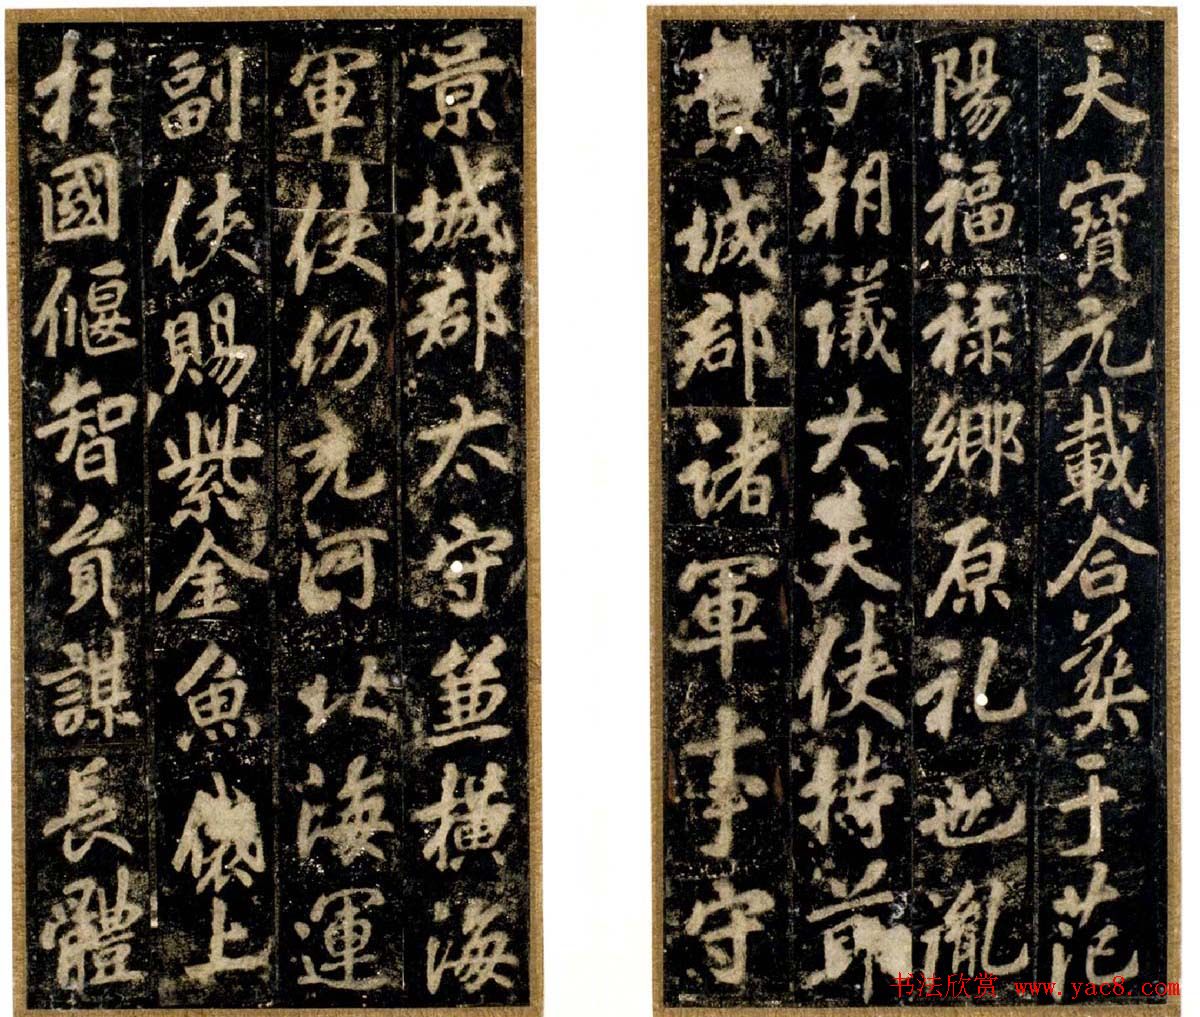 天寶元載合葬于范
陽福祿鄉原礼也胤
子朝議大夫使持節
景城郡諸軍事守
景城郡太守兼橫海
軍使仍充河北海運
副使賜紫金魚袋上
柱國偃智員謀長體
书法欣赏 www.yac8.com